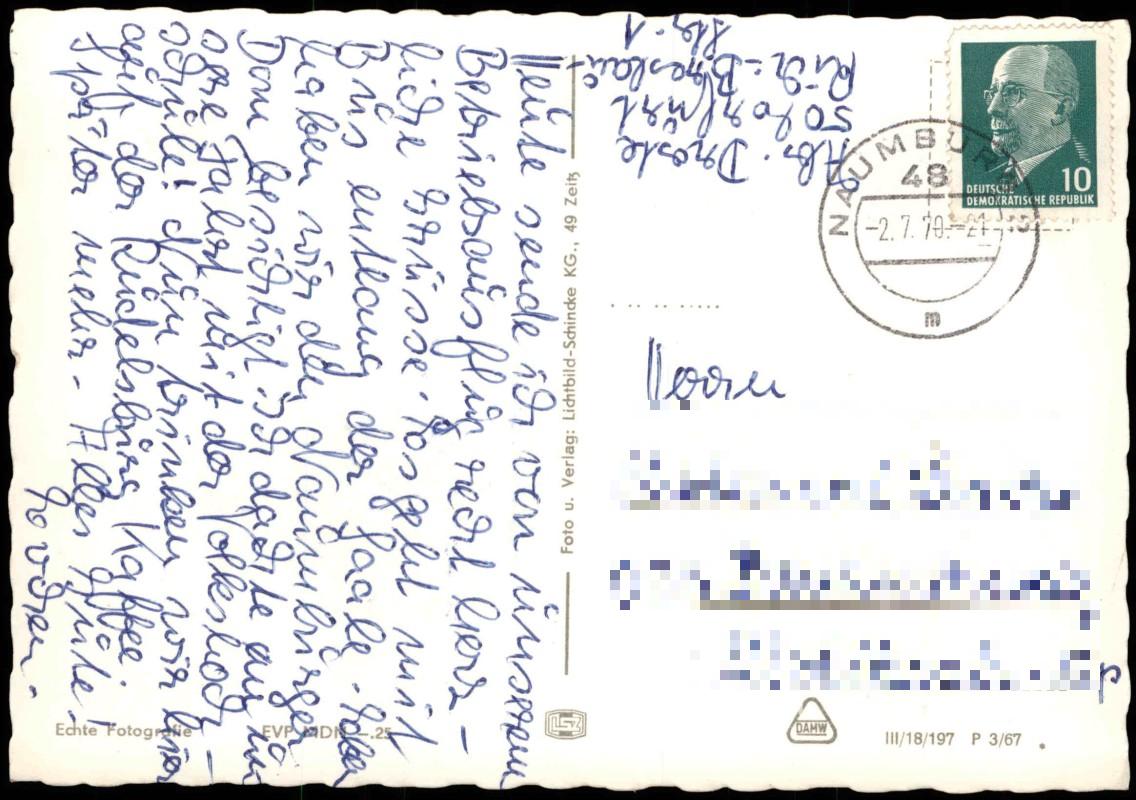 Heute sende ich von unserem
Betriebsausflug recht herz-
liche Grüsse. Es geht mit
Bus entlang der Saale. Eben
haben wir den Naumburger
Dom besichtigt. Ich dachte an
eure Fahrt mit der Volkshoch-
schule! Nun trinken wir hier
auf der Rudelsburg Kaffee.
Später mehr. Alles Gute!
Abs. Droste
50 Erfurt
Rich.-Breslau-
Str. 1
Herrn
DEUTSCHE
DEMOKRATISCHE REPUBLIK
10
NAUMBURG
48
-2.7.70.-21
m
Foto u. Verlag: Lichtbild-Schincke KG., 49 Zeitz
Echte Fotografie
EVP MDN -.25
DAMW
III/18/197 P 3/67